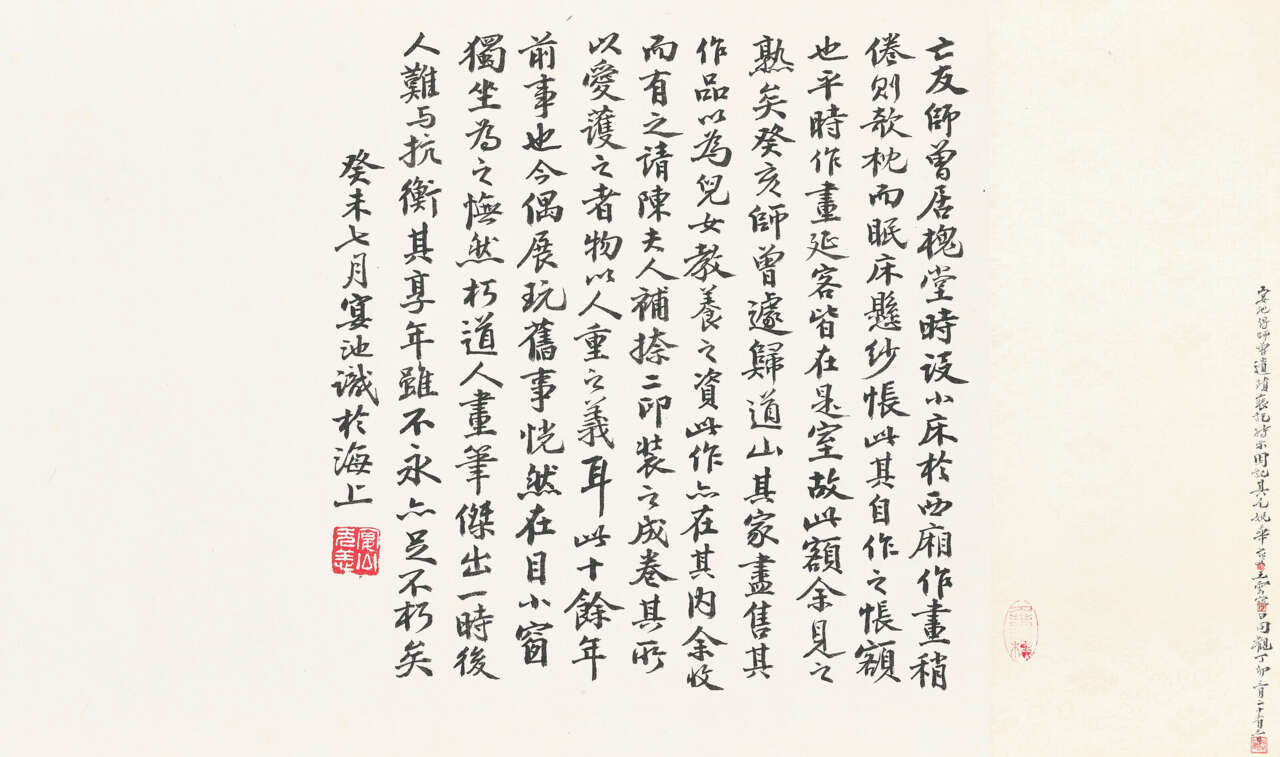 宴池得師曾遺墳裝池特示因記其尾姚華玉雲窗同觀丁卯三月二十有二日
亡友師曾居槐堂時设小床於西廂作畫稍
倦則欹枕而眠床懸紗帳此其自作之帳額
也平時作畫延客皆在是室故此額余見之
熟矣癸亥師曾遽歸道山其家盡售其
作品以為兒女教養之資此作亦在其内余收
而有之请陳夫人補捺二印装之成卷其所
以愛護之者物以人重之義耳此十餘年
前事也今偶展玩舊事恍然在目小窗
獨坐為之憮然朽道人畫筆傑出一時後
人難与抗衡其享年雖不永亦足不朽矣
癸未七月宴池識於海上